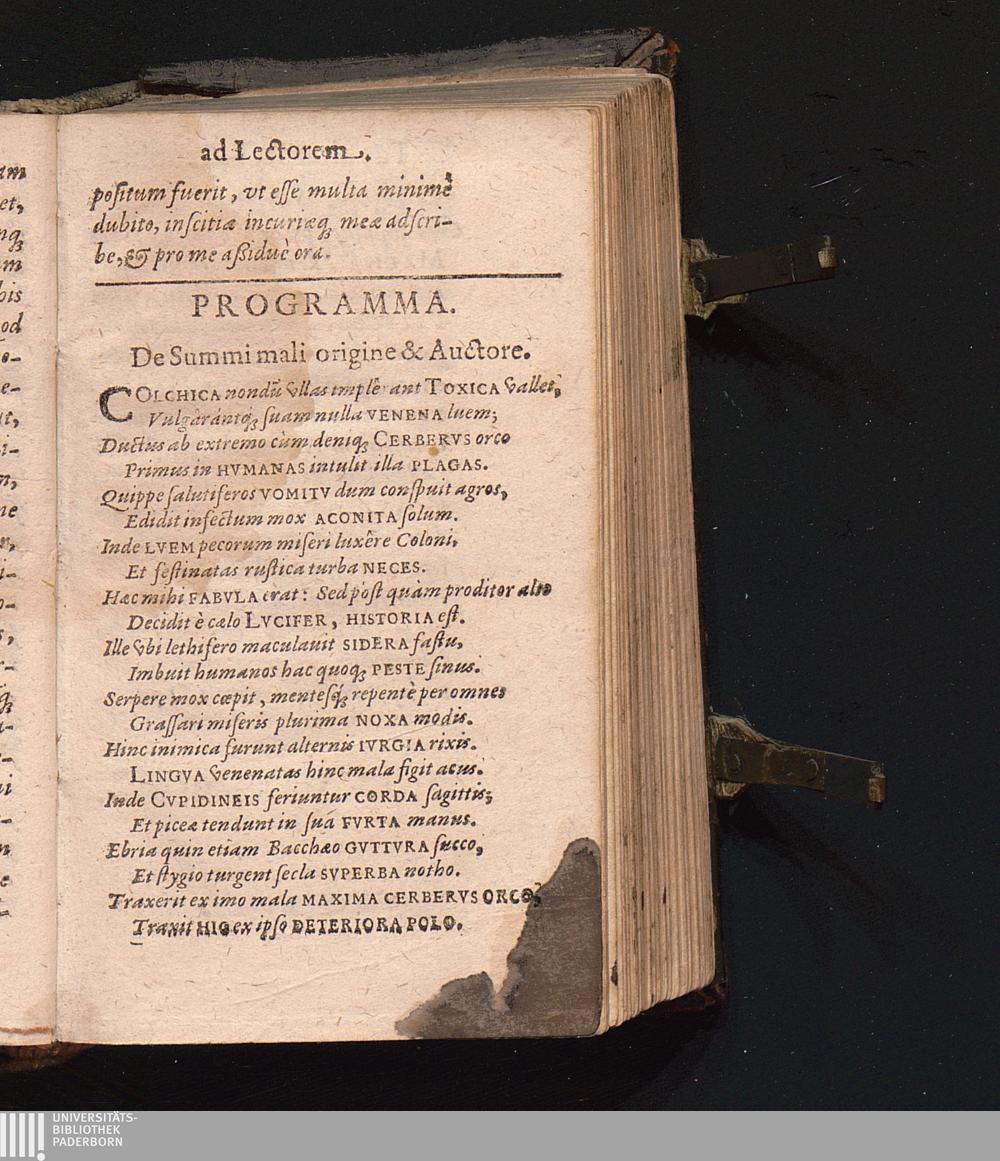 ad Lectorem.
positum fuerit, vt esse multa minimè
dubito, inscitiæ incuriæq́; meæ adscri-
be, & pro me assiduè ora.
PROGRAMMA.
De Summi mali origine & Auctore.
COLCHICA nondũ vllas implêrant TOXICA valles,
Vulgàrántq́; suam nulla VENENA luem;
Ductus ab extremo cùm deniq; CERBERVS orco
Primus in HVMANAS intulit illa PLAGAS.
Quippe salutiferos VOMITV dum conspuit agros,
Edidit infectum mox ACONITA solum.
Inde LVEM pecorum miseri luxêre Coloni,
Et festinatas rustica turba NECES.
Hæc mihi FABVLA erat: Sed pòst quàm proditor alto
Decidit è cælo LVCIFER, HISTORIA est.
Ille vbi lethifero maculauit SIDERA fastu,
Imbuit humanos hac quoq; PESTE sinus.
Serpere mox cœpit, mentesq́; repentè per omnes
Grassari miseris plurima NOXA modis.
Hinc inimica furunt alternis IVRGIA rixis.
LINGVA venenatas hinc mala figit acus.
Inde CVPIDINEIS feriuntur CORDA sagittis;
Et piceæ tendunt in sua FVRTA manus.
Ebria quin etiam Bacchæo GVTTVRA succo,
Et stygio turgent secla SVPERBA notho.
Traxerit ex imo mala MAXIMA CERBERVS ORCO,
Traxit HIC ex ipso DETERIORA POLO.
am
et,
nq;
m
bis
od
o-
e-
ut,
i-
n,
ne
r,
i-
o-
s,
r-
q;
t-
ui
i-
n
e
UNIVERSITÄTS-
BIBLIOTHEK
PADERBORN